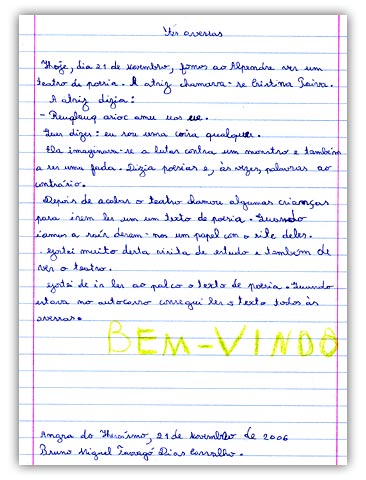 Vês aversas
Hoje, dia 21 de Novembro, fomos ao Alpendre ver um
teatro de poesia. A atriz chamava-se Cristina Paiva.
A atriz dizia:
- Reuqlauq asioc amu uos ue.
Quer dizer: eu sou uma coisa qualquer.
Ela imaginava-se a lutar contra um monstro e também
a ser uma fada. Dizia poesias e, às vezes, palavras ao
contrário.
Depois de acabar o teatro chamou algumas crianças
para irem ler um um texto de poesia. Quando
íamos a sair deram-nos um papel com o site deles.
Gostei muito desta visita de estudo e também de
ver o teatro.
Gostei de ir ler ao palco o texto de poesia. Quando
estava no autocarro consegui ler o texto todo às
avessas.
BEM-VINDO
Angra do Heroísmo, 21 de Novembro de 2006
Bruno Miguel Dias Carvalho.